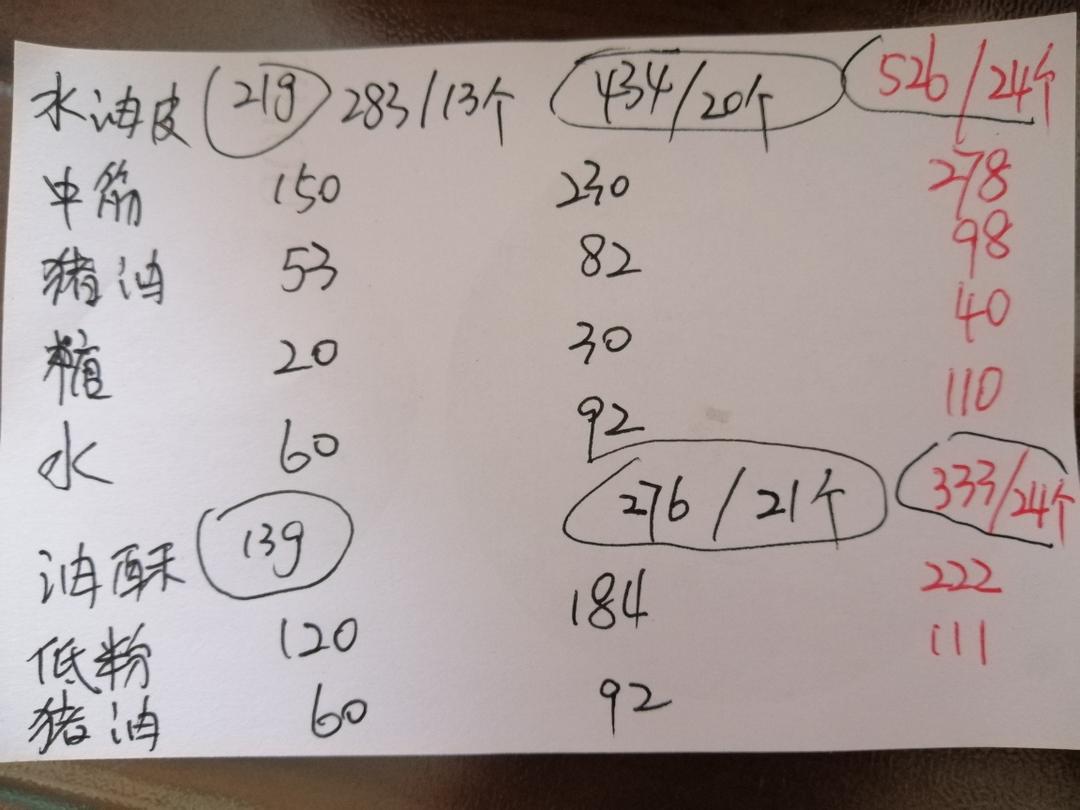 水油皮 21g 283/13个 434/20个 526/24个
中筋 150 230 278
猪油 53 82 98
糖 20 30 40
水 60 92 110
油酥 13g 276/21个 333/24个
低粉 120 184 222
猪油 60 92 111